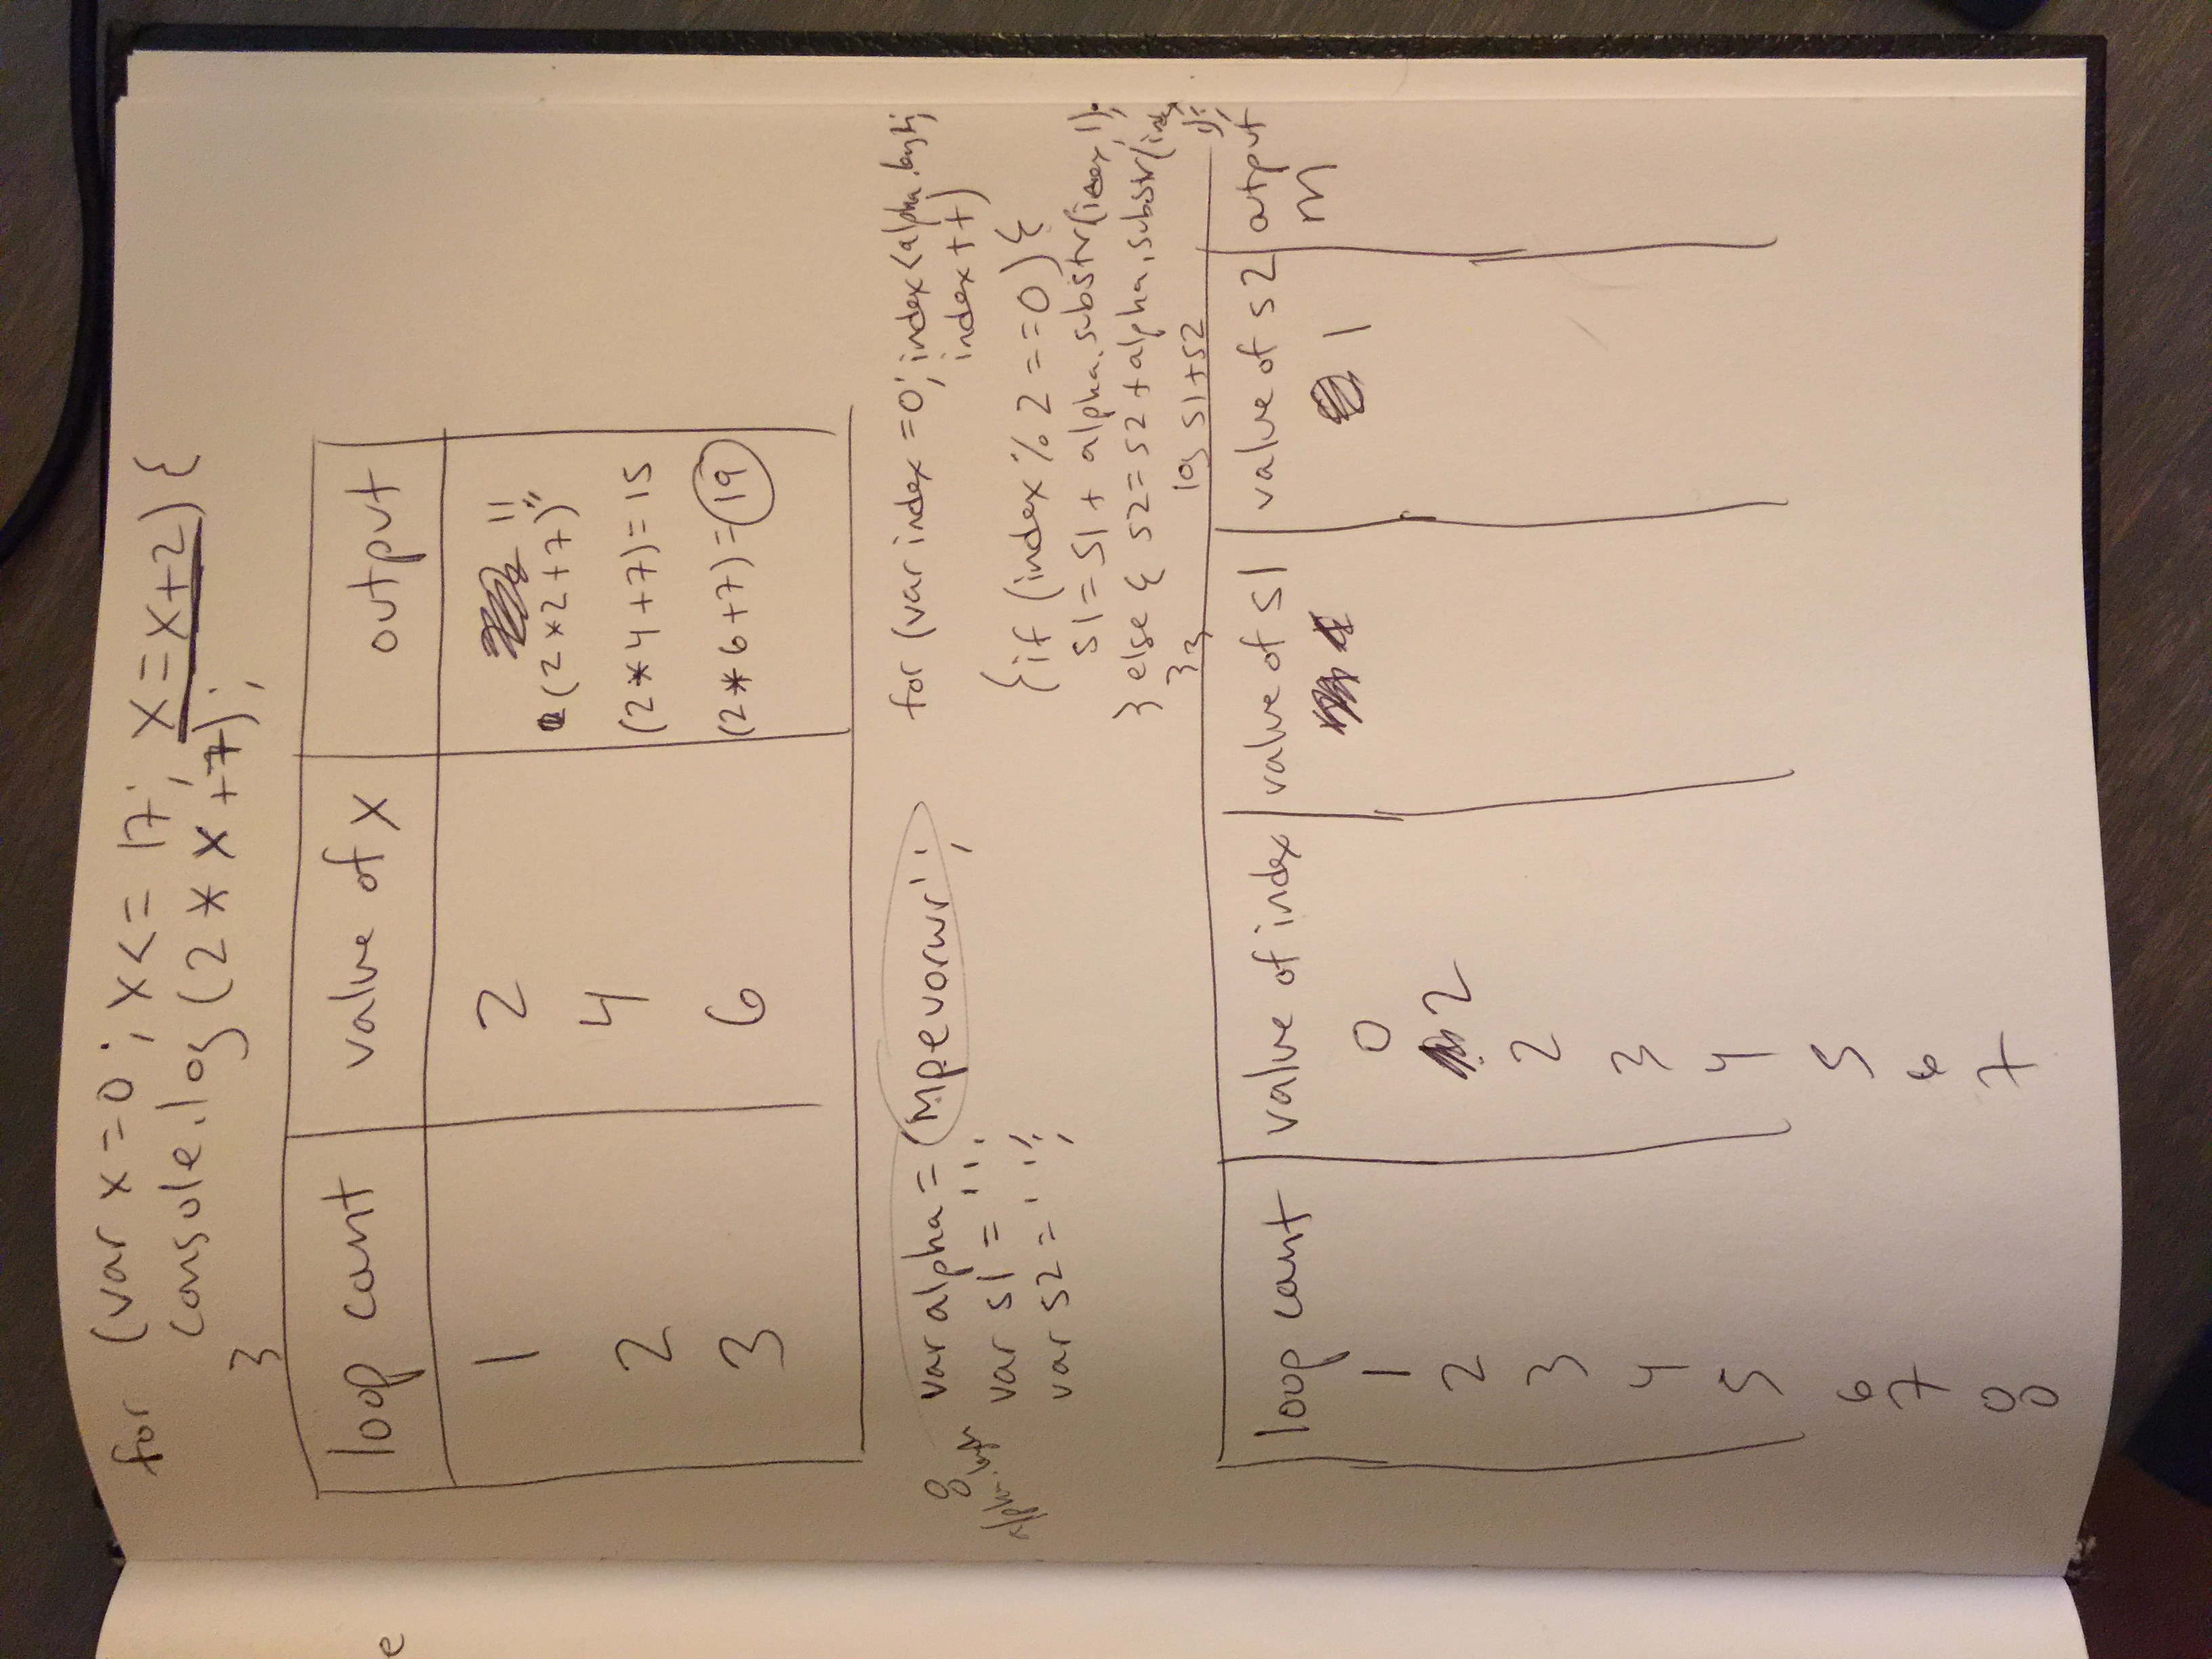 e
for (var x=0; x<= 17; x=x+2) {
console.log (2 * x +7);
}
loop count value of x output
1 2 11
(2*2+7)
2 4 (2*4+7)=15
3 6 (2*6+7)=19
8
alpha.length
var alpha = 'Mpevorwr';
var s1 = '';
var s2 = '';
for (var index =0; index<alpha.length;
index++)
{if (index % 2 ==0) {
s1=s1+ alpha.substr(index,1);
} else { s2=s2+alpha.substr(index
1);
}} log s1+s2
loop count value of index value of s1 value of s2 output
1 0 1 M
2 2
3 2
4 3
5 4
6 5
7 6
8 7